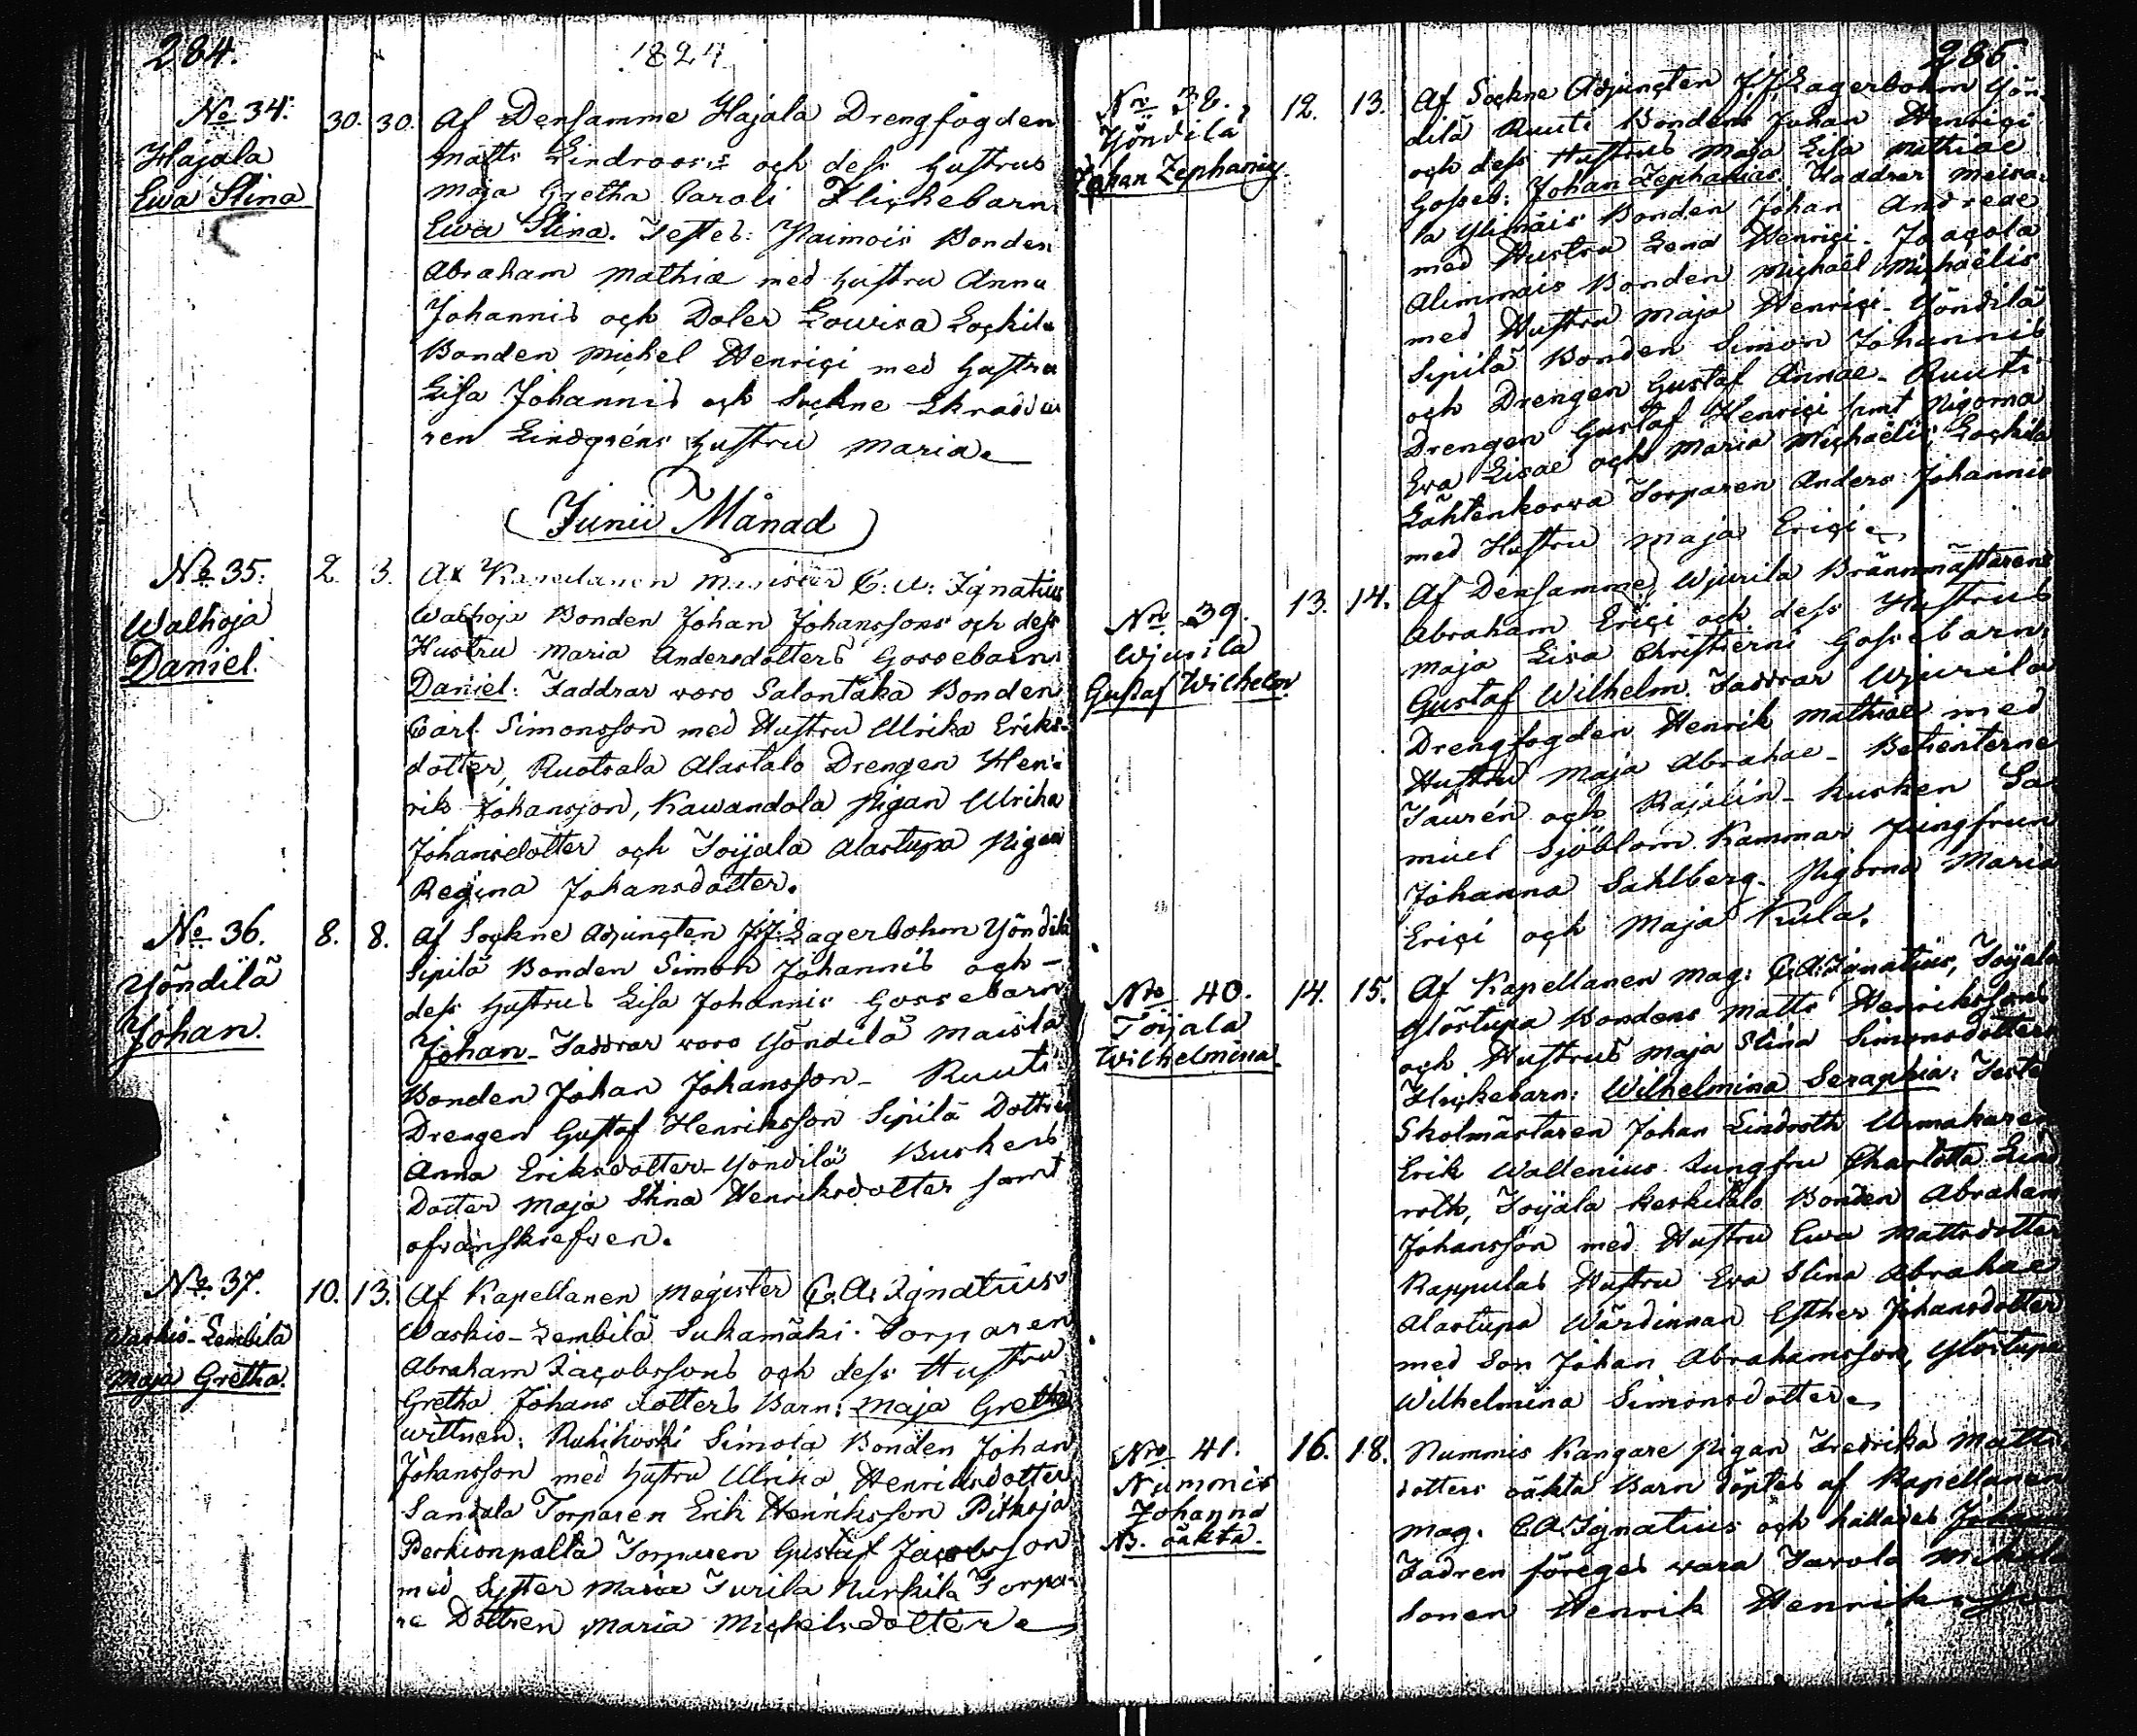 284.
1824
No 34.
Hajala
Ewa Stina
30. 30.
Af Densamme Hajala Drengfogden
Matts Lindroos's och dess Hustrus
Maja Gretha Caroli Flickebarn:
Ewa Stina. Testes: Haimois Bonden
Abraham Mathiæ med Hustru Anna
Johannis och Doter Lowisa Lockila
Bonden Michel Henrici med Hustru
Lisa Johannis och Sockne Skradda
ren Lindgréns Hustru Maria.
Junii Månad
No 35.
Walhoja
Daniel.
2. 3.
Af Kapellanen Magister C. A. Ignatius
Walhoja Bonden Johan Johanssons och dess
Hustru Maria Andersdotters Gossebarn
Daniel: Faddrar woro Salontaka Bonden
Carl Simonsson med Hustru Ulrika Eriks-
dotter, Ruotsala Alastalo Drengen Hen-
rik Johansson, Kawandola Pigan Ulrika
Johansdotter och Toijala Alastupa Pigan
Regina Johansdotter.
No 36.
Yöndilä
Johan.
8. 8.
Af Sockne Adjuncten J. J. Lagerbohm Yöndilä
Sipilä Bonden Simon Johannis och -
dess Hustrus Lisa Johannis Gossebarn
Johan - Faddrar woro Yöndilä Maisla
Bonden Johan Johansson - Ruuti
Drengen Gustaf Henriksson Sipilä Dottren
Anna Eriksdotter - Yöndilä Buskens
Doter Maja Stina Henriksdotter samt
ofvanskrefven.
No 37.
Waskio-Lembilä
Maja Gretha.
10. 13.
Af Kapellanen Magister C. A. Ignatius
Waskio-Lembilä Sukamäki Torparen
Abraham Jacobssons och dess Hustru
Gretha Johans dotters Barn: Maja Gretha
wittnen: Rukikoski Simola Bonden Johan
Johansson med Hustru Ulrika Henriksdotter
Sandala Torparen Erik Henriksson Pitkoja
Perkionpalta Torparen Gustaf Jacobsson
med Syster Maria Turila Nurkila Torpa-
re Dottren Maria Michelsdotter.
285.
No 38.
Yöndilä
Johan Zephanias
12. 13.
Af Sockne Adjuncten J. J. Lagerbohm Yön-
dilä Ruuti Bondens Johan Henrici
och dess Hustrus Maja Lisa Mathiæ
Gosseb: Johan Zephanias. Faddrar Meisa-
la Ylimäis Bonden Johan Andreae
med Hustru Lena Henrici. Jaacola
Alimmais Bonden Michaël Michaëlis
med Hustru Maja Henrici. Yöndilä
Sipilä Bonden Simon Johannis
och Drengen Gustaf Annae - Ruuti
Drengen Gustaf Henrici samt Pigorna
Eva Lisae och Maria Michaëlis Lockila
Lähtenkorwa Torparen Anders Johannis
med Hustru Maja Erici.
No 39.
Wjurila
Gustaf Wilhelm
13. 14.
Af Densamme, Wjurila Brännmästarens
Abraham Erici och dess Hustrus
Maja Lisa Christierni Gossebarn:
Gustaf Wilhelm. Faddrar Wjurila
Drengfogden Henrik Mathiae med
Hustru Maja Abrahae - Betienterne
Taurén och Rajalin - Kusken Sa-
muel Sjöblom. Kammar Jungfrun
Johanna Sahlberg. Pigorna Maria
Erici och Maja Kula.
No 40.
Toijala
Wilhelmina
14. 15.
Af Kapellanen Mag: C. A. Ignatius, Toijala
Ylöstupa Bondens Matts Henrikssons
och Hustrus Maja Stina Simonsdotters
Flickebarn: Wilhelmina Seraphia: Teste
Skolmästaren Johan Lindroth Urmakaren
Erik Wallenius Jungfru Charlotta Lind
roth, Toijala Keskitalo Bonden Abraham
Johansson med Hustru Ewa Mattsdotter
Kappulas Hustru Eva Stina Abrahae
Alastupa Wärdinnan Esther Johansdotter
med Son Johan Abrahamsson, Ylöstupa
Wilhelmina Simonsdotter.
No 41.
Nummis
Johanna
N. oäkta.
16. 18.
Nummis Kangare Pigan Fredrika Matts-
dotters oäkta Barn döptes af Kapellanen
Mag. C. A. Ignatius och kallades Johanna
Fadren föreges wara Tavola Mikola
Sonen Henrik Henriksson